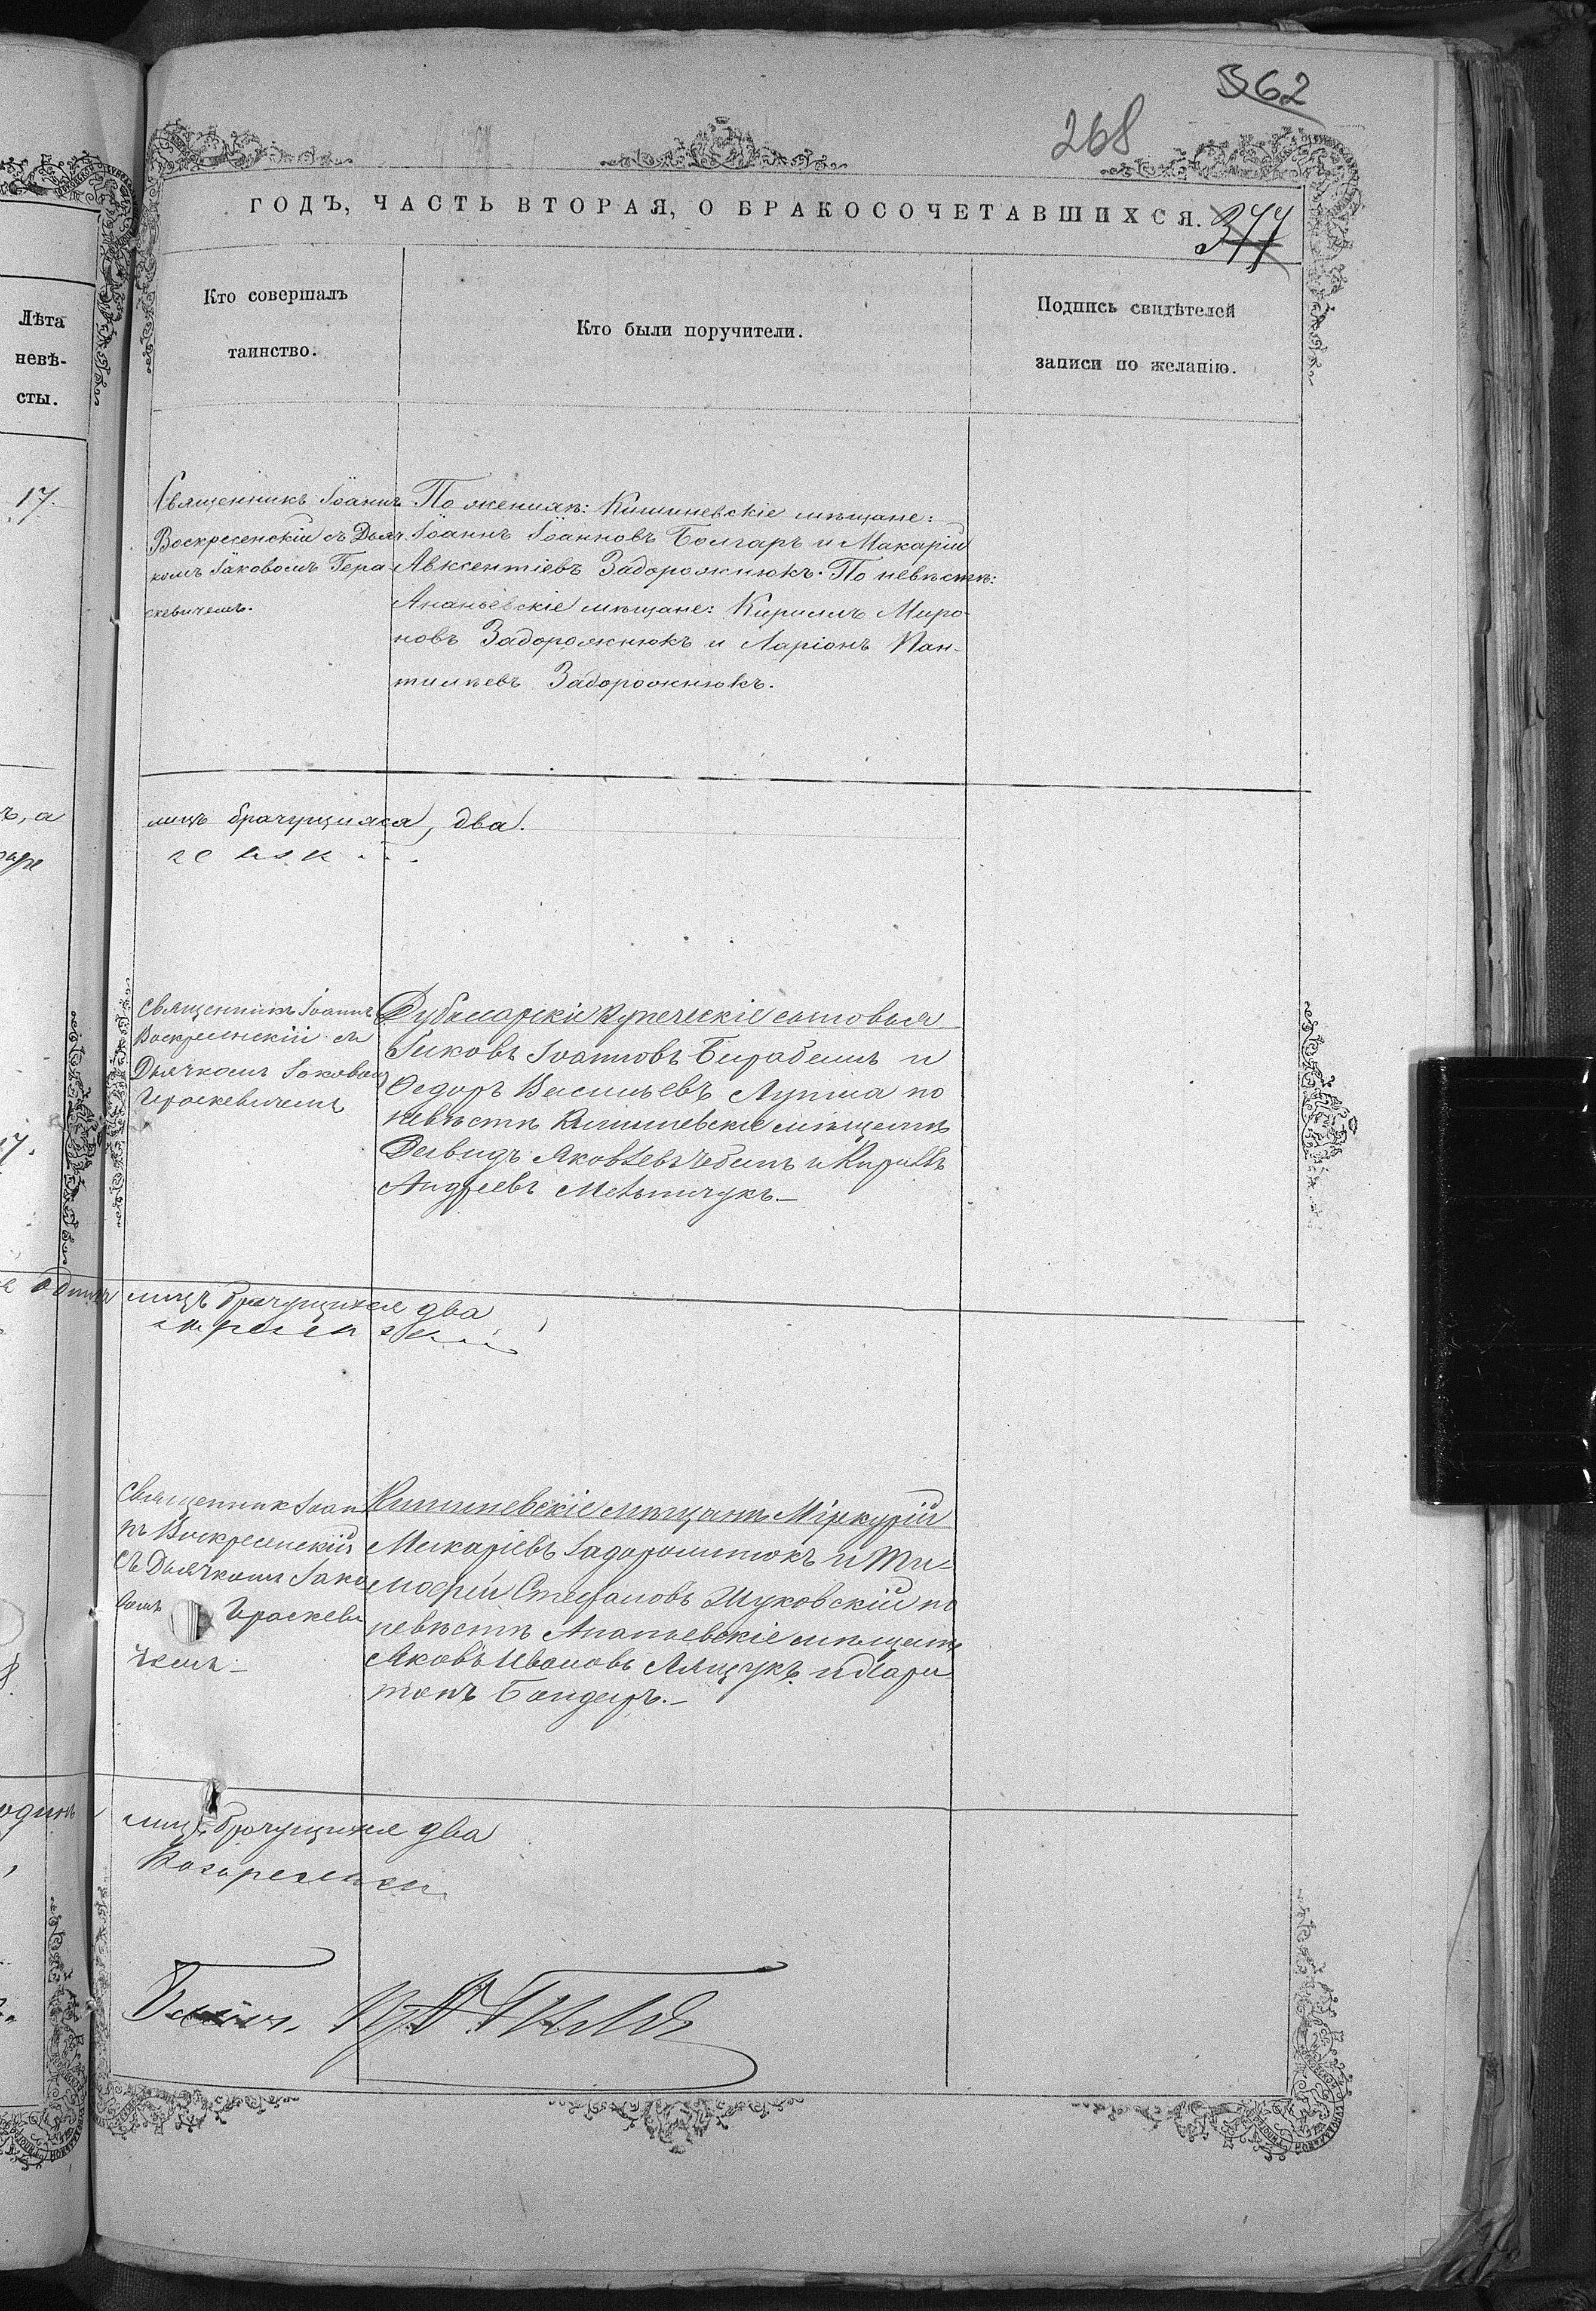 362
268
ГОДЪ, ЧАСТЬ ВТОРАЯ, О БРАКОСОЧЕТАВШИХСЯ.
377
Лѣта
невѣ-
сты.
Кто совершалъ
таинство.
Кто были поручители.
Подпись свидѣтелей
записи по желанію.
17.
Священникъ Іоаннъ
Воскресенскій съ Дьяч
комъ Іаковомъ Гера
скевичемъ.
По женихѣ: Кишиневскіе мѣщане:
Іоаннъ Іоанновъ Болгаръ и Макарій
Авксентіевъ Задорожнюкъ. По невѣстѣ:
Ананьевскіе мѣщане: Кириллъ Миро-
новъ Задорожнюкъ и Ларіонъ Пан-
тилѣевъ Задорожнюкъ.
ъ, а
лицъ брачущихся, два.
Священникъ Іоаннъ
Воскресенскій съ
Дьячкомъ Іаковом
Гераскевичемъ
Дубосарскіи купеческіе сыновья
Іаковъ Іоанновъ и
Ѳедоръ Васильевъ Лупша по
невѣстѣ Кишиневскіе мѣщанѣ
Давидъ Яковлевъ Чебанъ и Кириллъ
Андреевъ Мельничукъ.—
17.
одинъ
лицъ брачущихся два
Священник Іоан
нъ Воскресенскій
съ Дьячкомъ Іако
вомъ Гераскеви
чемъ—
Кишиневскіе мѣщанѣ Міркурій
Макаріевъ Задорожнюкъ и Ти-
мофей Стефановъ Жуковскій по
невѣстѣ Ананьевскіе мѣщанѣ
Яковъ Ивановъ Лящукъ и Хари
тонъ Бондарь.—
8.
одинъ
лицъ брачущихся два